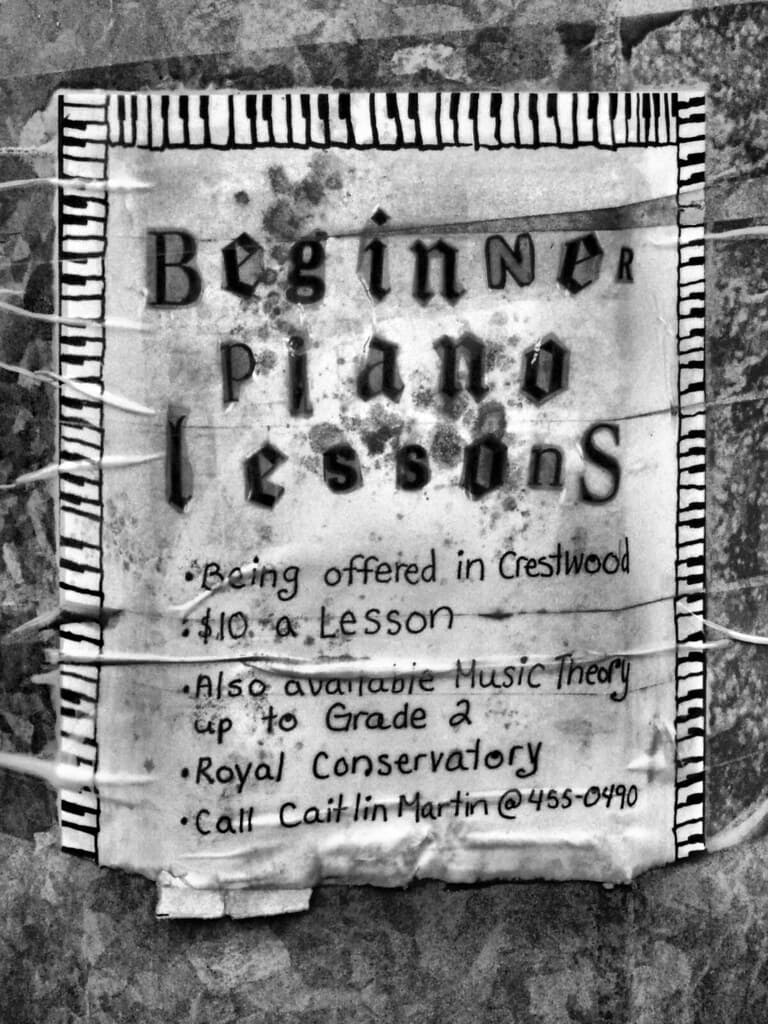 BeginNeR
piano
lessonS
• Being offered in Crestwood
• $10. a Lesson
• Also available Music Theory
up to Grade 2
• Royal Conservatory
• Call Caitlin Martin @ 455-0490